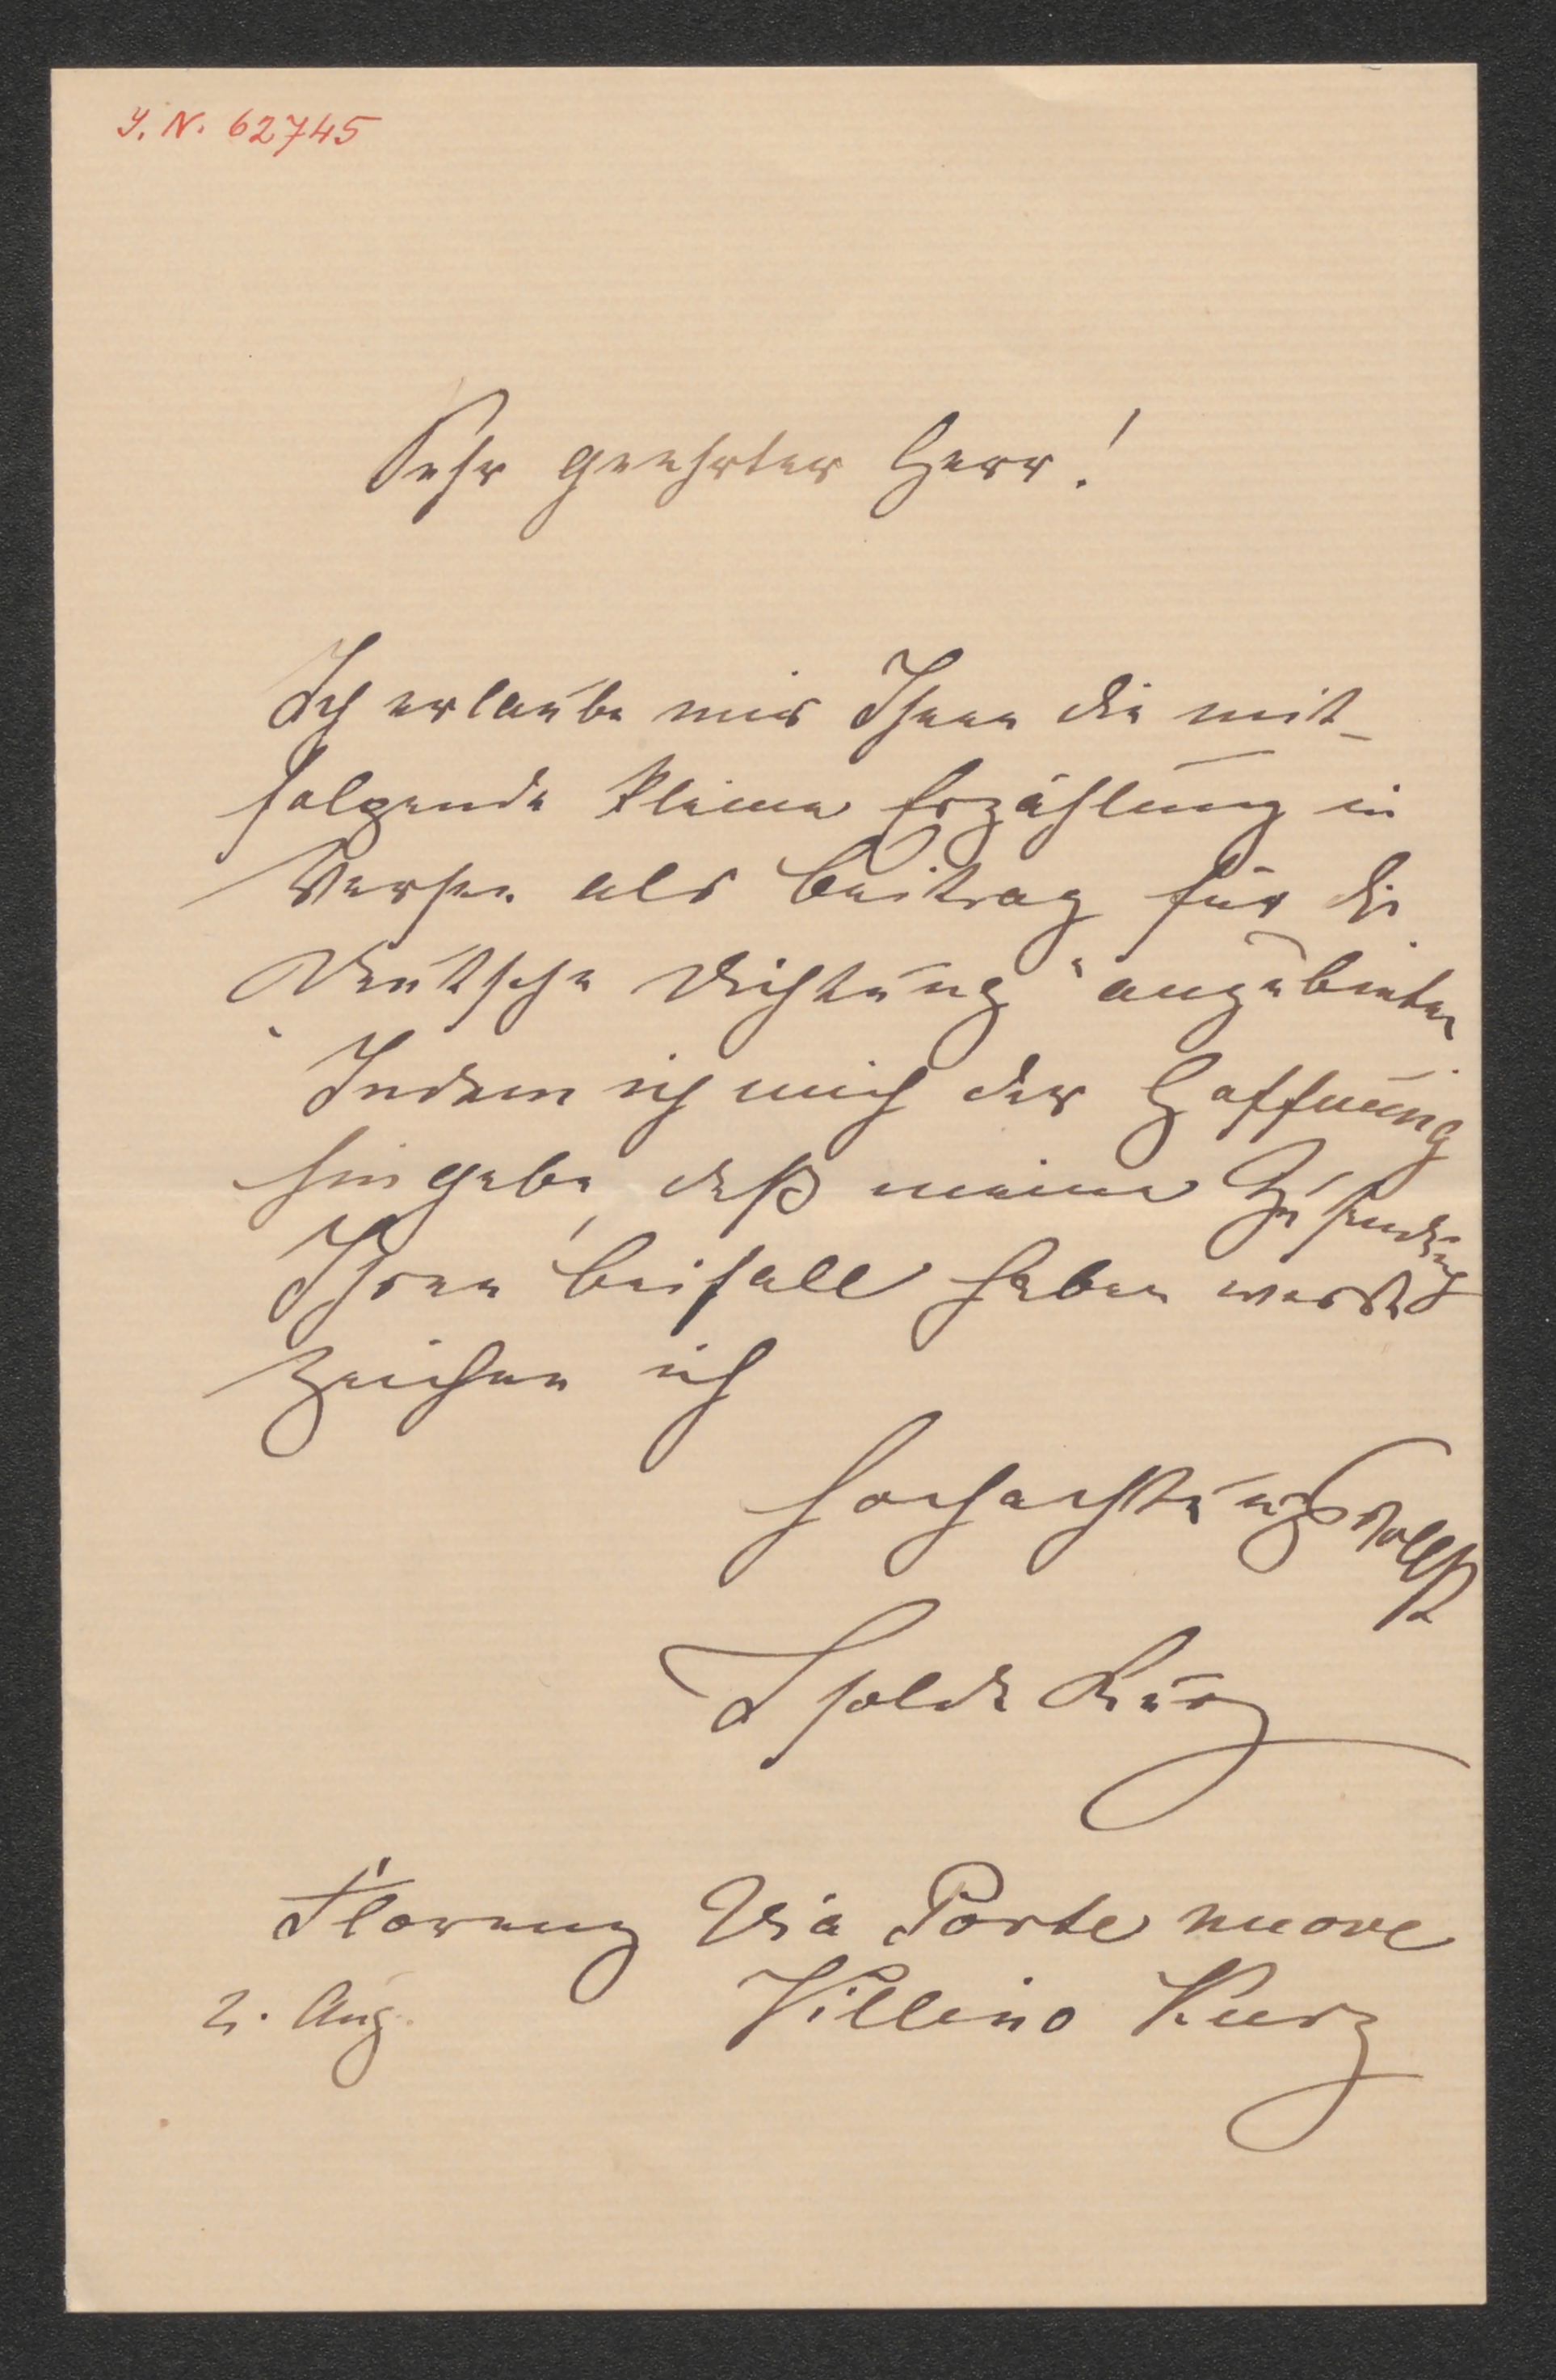 J. N. 62745
Sehr geehrter Herr!
Ich erlaube mir Ihnen die mit-
folgende kleine Erzählung in
Versen als Beitrag für die
„Deutsche Dichtung“ anzubieten.
Indem ich mich der Hoffnung
hingebe, daß meine Zusendung
Ihren Beifall haben werde
zeichne ich
hochachtungsvollst
Isolde Kurz
Florenz Via Porte nuove
2. Aug. Villino Kurz